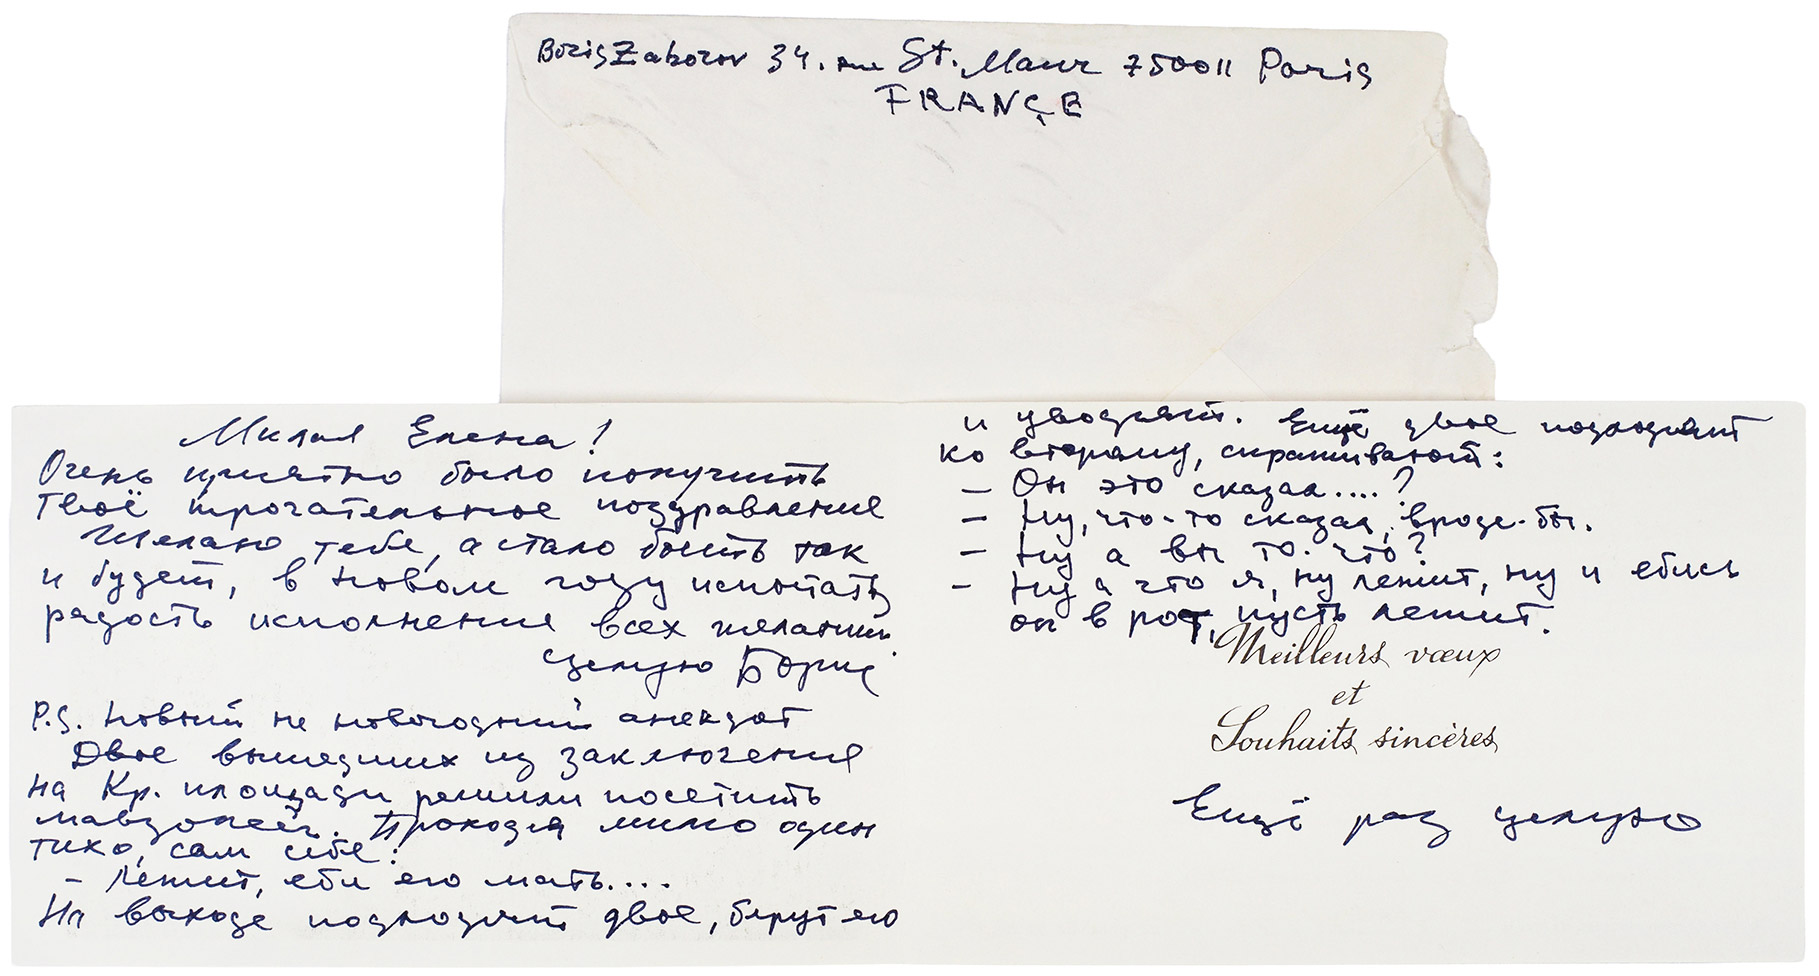 Boris Zaborov 34. rue St. Maur 75011 Paris
FRANÇE
Милая Елена!
Очень приятно было получить
твоё трогательное поздравление
Желаю тебе, а стало быть так
и будет, в Новом году испытать
радость исполнения всех желаний
целую Борис
P.S. Новый не новогодний анекдот
Двое вышедших из заключения
на Кр. площади решили посетить
мавзолей. Проходя мимо один
тихо, сам себе:
– Лежит, ебл его мать....
На выходе подходят двое, берут его
и уводят. Ещё двое подходят
ко второму, спрашивают:
– Он это сказал....?
– Ну, что-то сказал, вроде-бы.
– Ну а вы то-что?
– Ну а что я, ну лежит, ну и ебись
он в рот, пусть лежит.
Meilleurs vœux
et
Souhaits sincères
Ещё раз целую